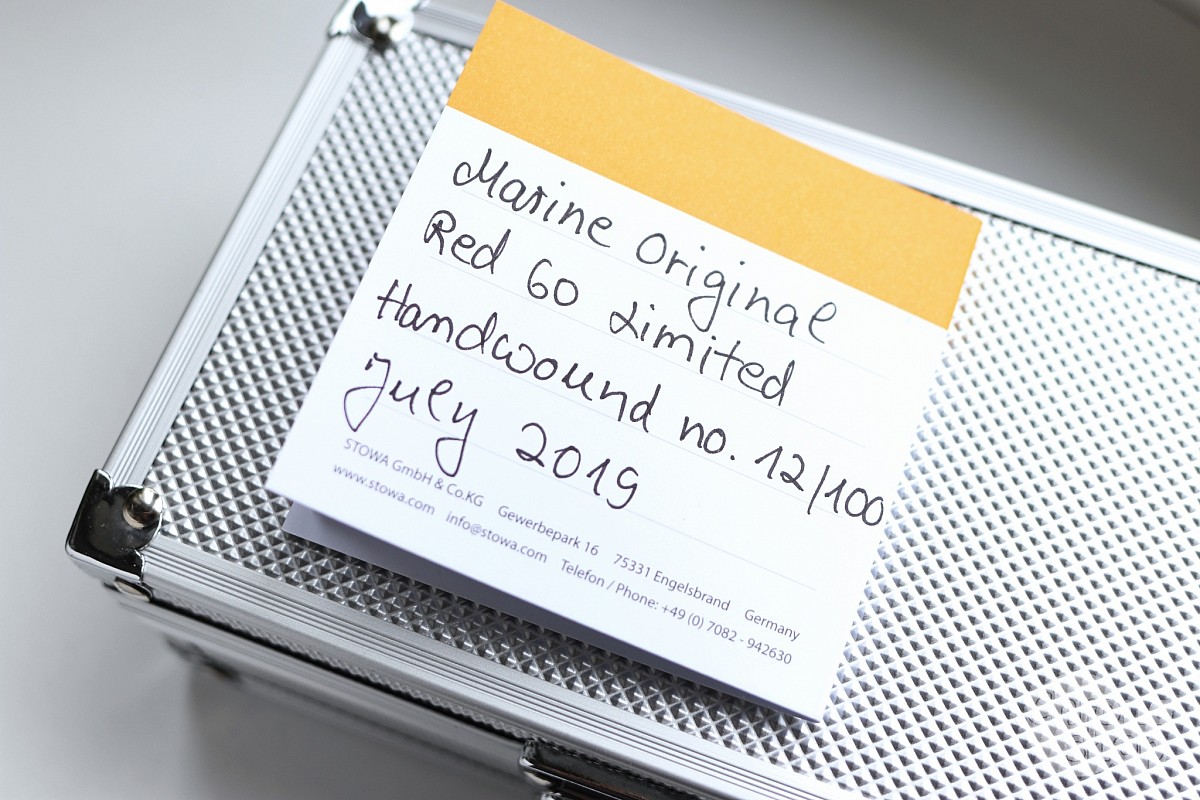 Marine Original
Red 60 Limited
Handwound no. 12/100
July 2019
STOWA GmbH & Co.KG Gewerbepark 16 75331 Engelsbrand Germany
www.stowa.com info@stowa.com Telefon / Phone: +49 (0) 7082 - 942630